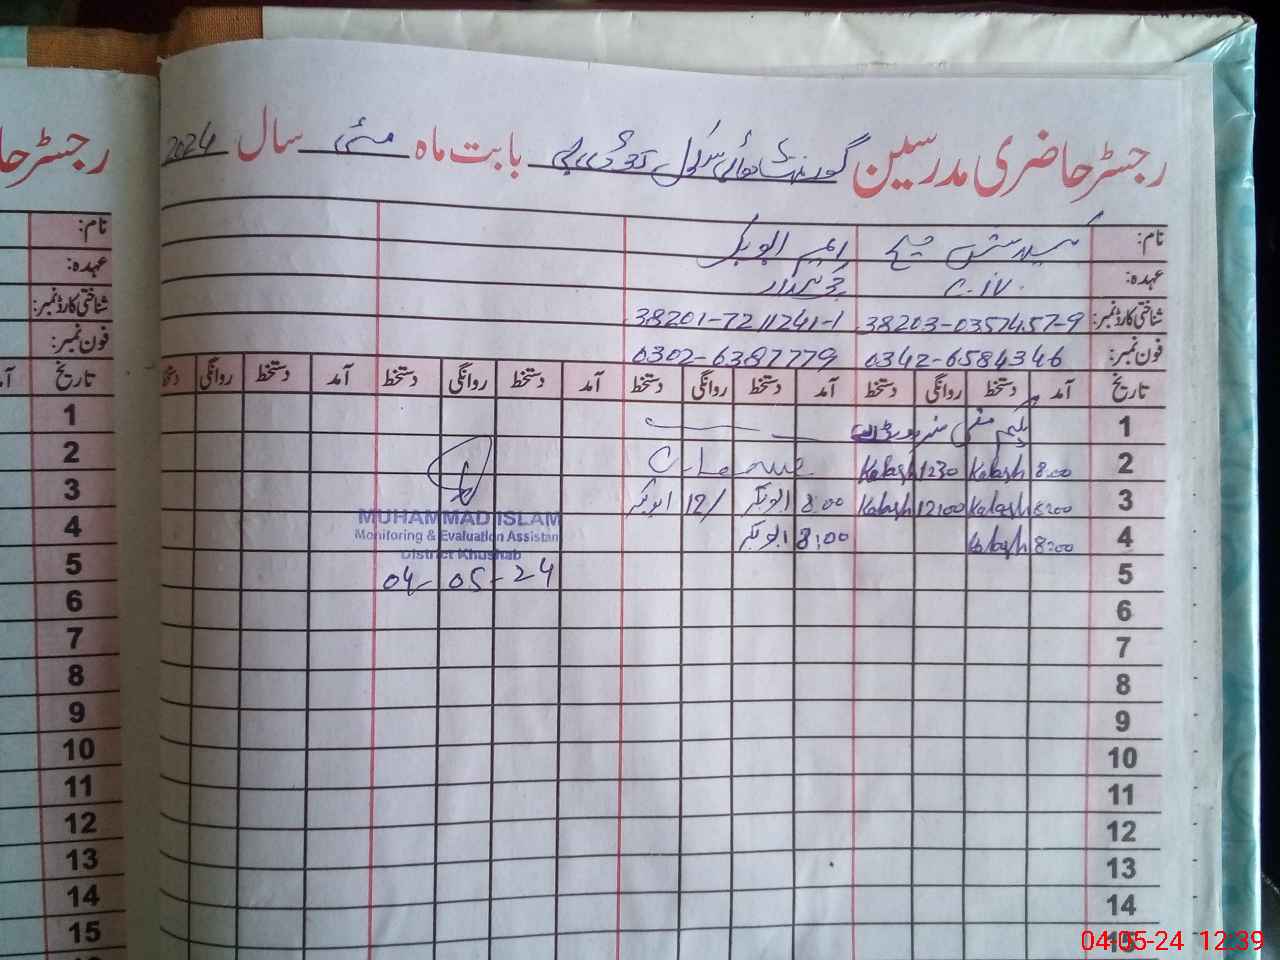 رجسٹر حاضری مدرسین گورنمنٹ ہائی سکول بابت ماہ مئی سال 2024
رجسٹر حا
نام: ایم ابوبکر
عہدہ: C-IV چوکیدار
شناختی کارڈ نمبر: 38203-0357457-9 38201-7211241-1
فون نمبر: 0342-6584346 0302-6387779
تاریخ آمد دستخط روانگی دستخط آمد دستخط روانگی دستخط آمد دستخط روانگی دستخط آمد دستخط روانگی دستخط
1 یکم مئی
2 8:00 Kalash 1230 Kalash C-Leave
3 8:00 Kalash 12:00 Kalash 8:00 ابوبکر 12/ ابوبکر
4 8:00 Kalash 8:00 ابوبکر
MUHAMMAD ISLAM
Monitoring & Evaluation Assistan
District Khushab
04-05-24
5
6
7
8
9
10
11
12
13
14
15
نام:
عہدہ:
شناختی کارڈ نمبر:
فون نمبر:
تاریخ
1
2
3
4
5
6
7
8
9
10
11
12
13
14
15
04-05-24 12:39